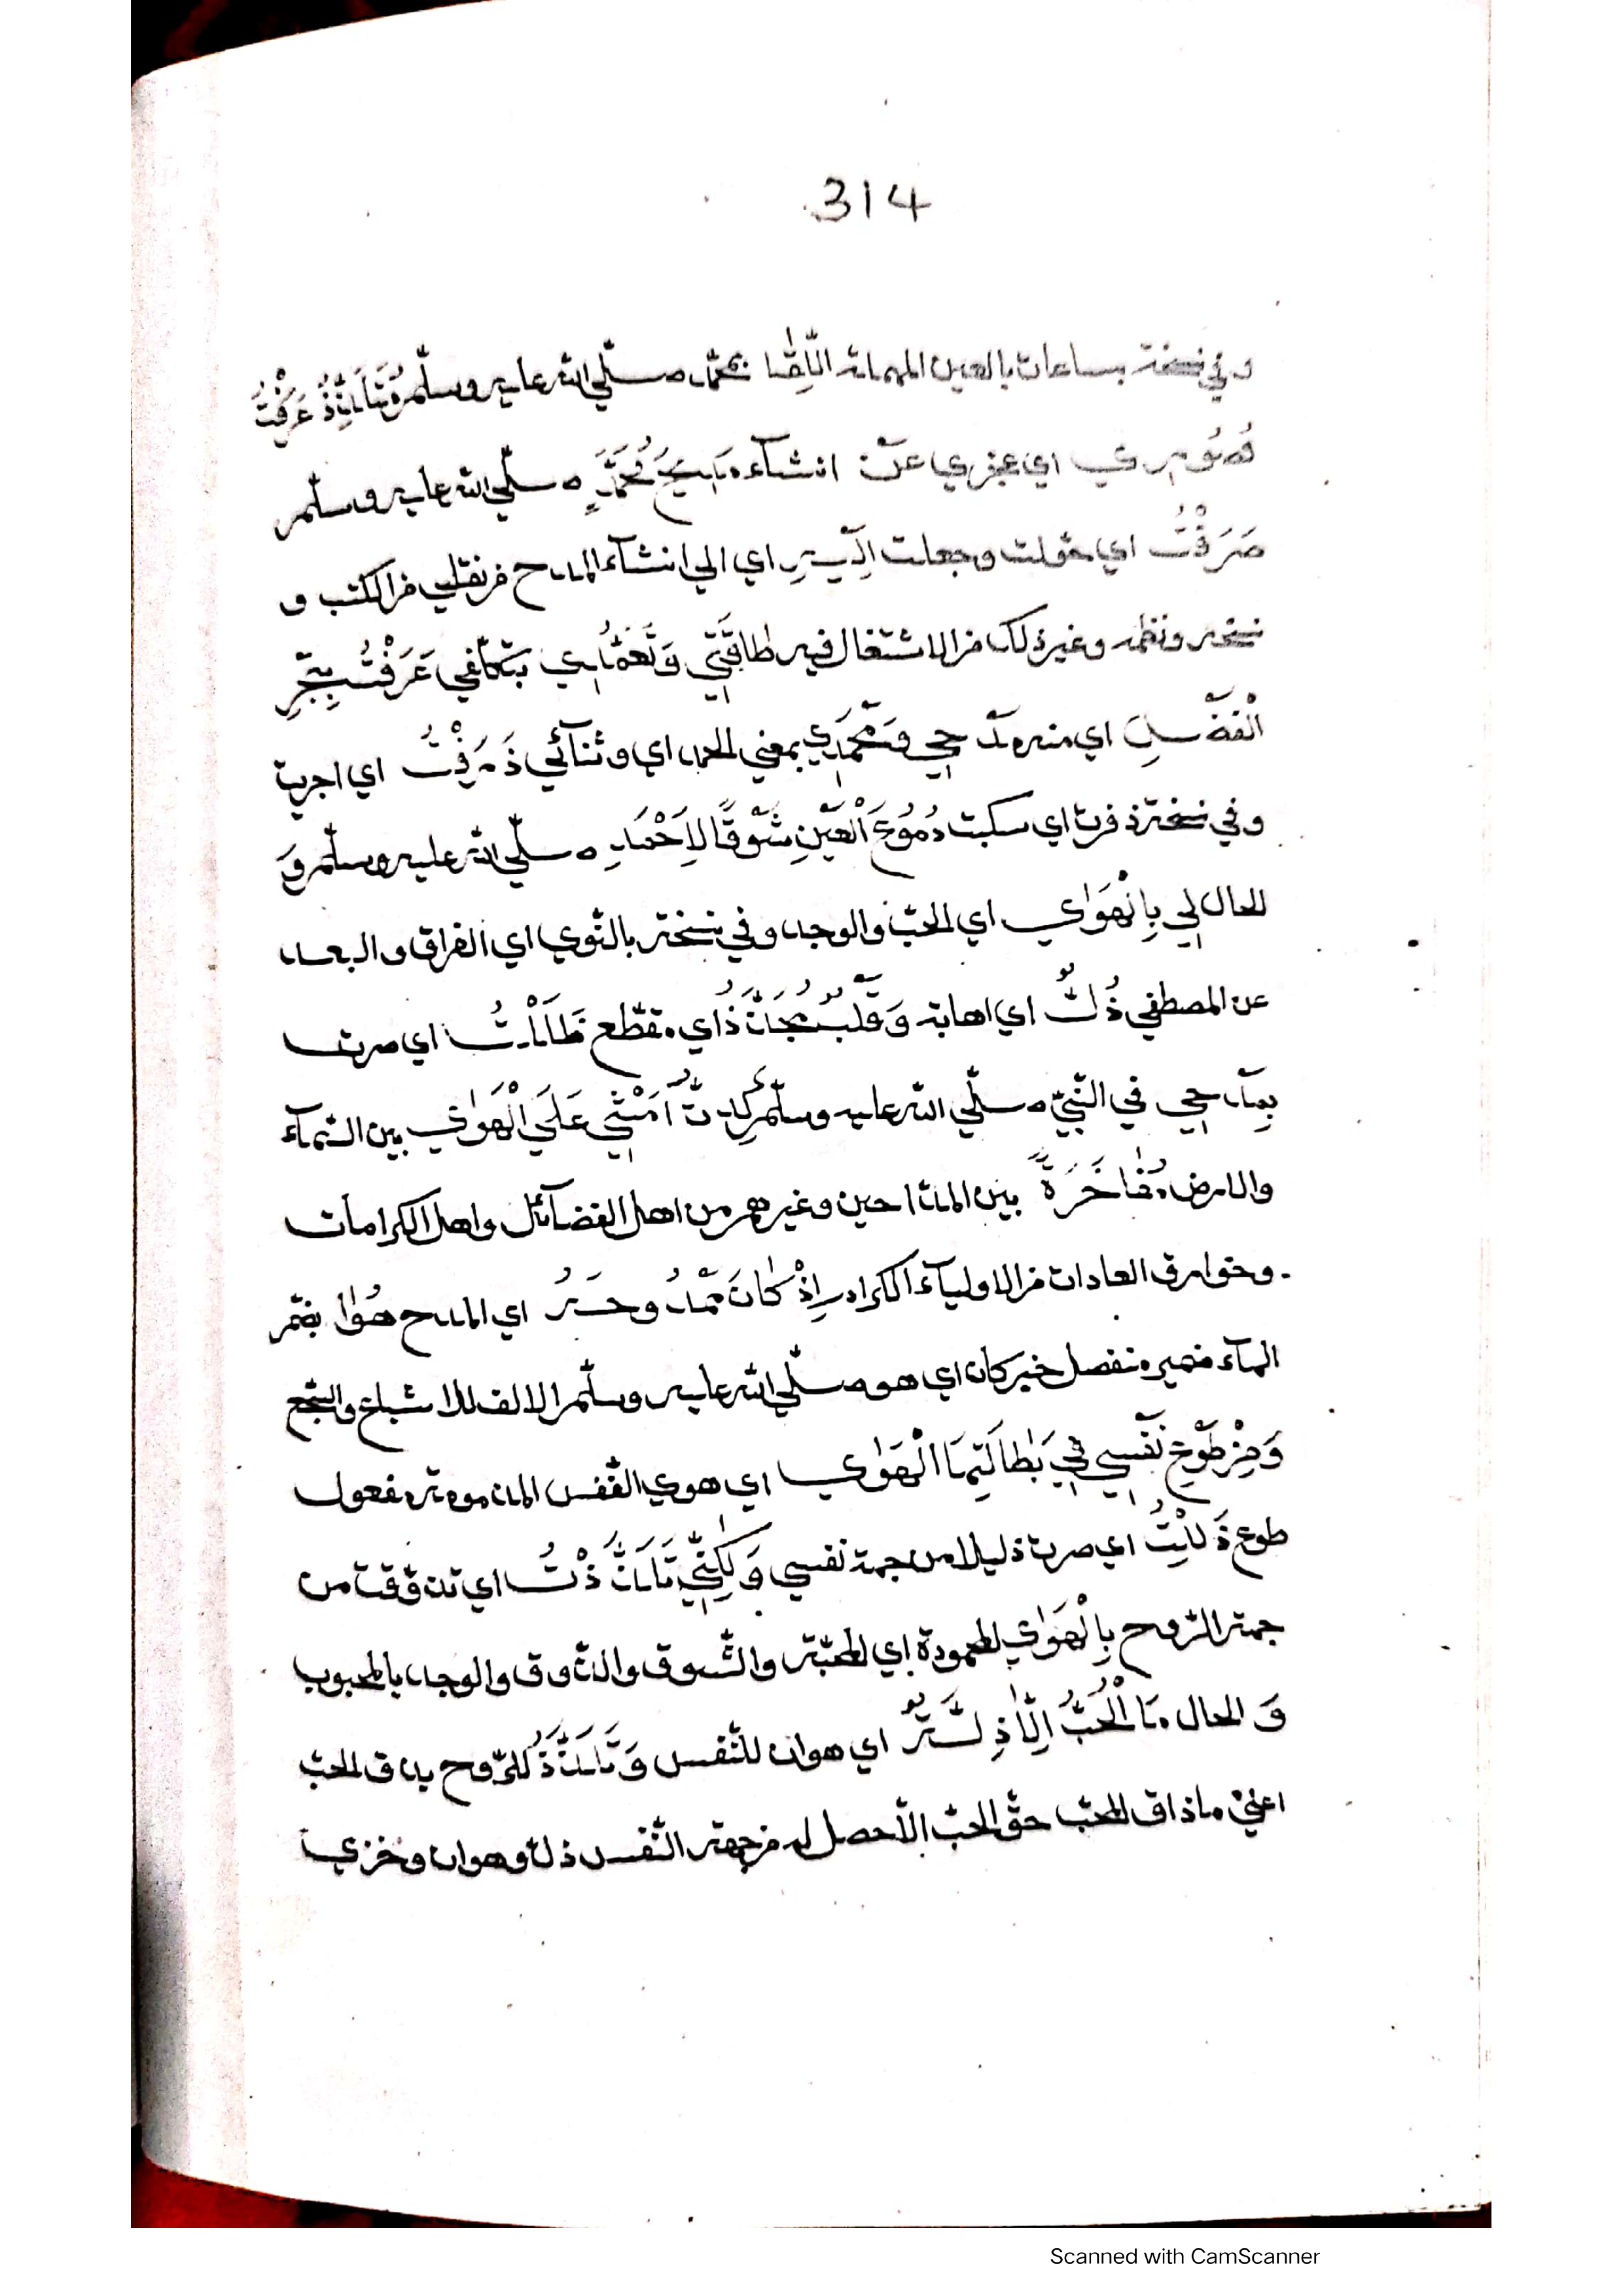 314
وفي نسخة بساعات بالعين المهملة اللِّقَٰا بمحمّد صلّي الله عليه وسلّم وَمُذْ عَرَفْتُ
قُصُورِي اي عجزي عن انشآء مَدِيحِ مُحَمَّدٍ صلّي الله عليه وسلّم
صَرَفْتُ اي حوّلت وجعلت اِلَيْهِ اي الي انشآء المدح من نقله من الكتب و
نسخه ونظمه وغير ذلك من الاشتغال فيه طَاقَتِي وَتَعَمُّدِي بتكلّفي غَرَفْتُ بِبَحْرِ
الْفَضْلِ اي منه مَدْحِي وَمَحْمَدِي بمعني الحمد اي وثنآئي ذَرَفْتُ اي اجريت
وفي نسخة ذفرت اي سكبت دُمُوعَ الْعَيْنِ شَوْقًا لِاَحْمَدِ صلّي الله عليه وسلّم وَ
الحال لِي بِالْهَوٰي اي الحبّ والوجد وفي نسخة بالنّوي اي الفراق والبعد
عن المصطفي ذُلٌّ اي اهانة وَقَلْبٌ مُجَذَّذُ اي مقطّع ظَلَلْتُ اي صرت
بِمَدْحِي في النّبيّ صلّي الله عليه وسلّم كِدتُّ اَمْشِي عَلَي الْهَوٰي بين السّمآء
والارض مُفٰاخَرَةً بين المدّاحين وغيرهم من اهل الفضآئل واهل الكرامات
وخوارق العادات من الاوليآء الكرام اِذْ كٰانَ مَمْدُوحَهُ اي المدح هُوٰا بضمّ
الهآء ضمير منفصل خبر كان اي هو صلّي الله عليه وسلّم الالف للاشباع والسّجع
وَمِنْ طَوْعِ نَفْسِي فِي بَطٰالَتِهَا الْهَوٰي اي هوي النّفس المذمومة مفعول
طوع ذَلَلْتُ اي صرت ذليلا من جهة نفسي وَلٰكِنِّي تَلَذَّذْتُ اي تذوّقت من
جهة الرّوح بِالْهَوٰي المحمودة اي المحبّة والشّوق والذّوق والوجد بالمحبوب
وَ الحال مَا الْحُبُّ اِلّٰا ذِلَّةٌ اي هوان للنّفس وَتَلَذُّذُ للرّوح يذاق الحبّ
اعني ماذاق المحبّ حقّ الحبّ الّا حصل له من جهة النّفس ذلّ وهوان وخزي
Scanned with CamScanner